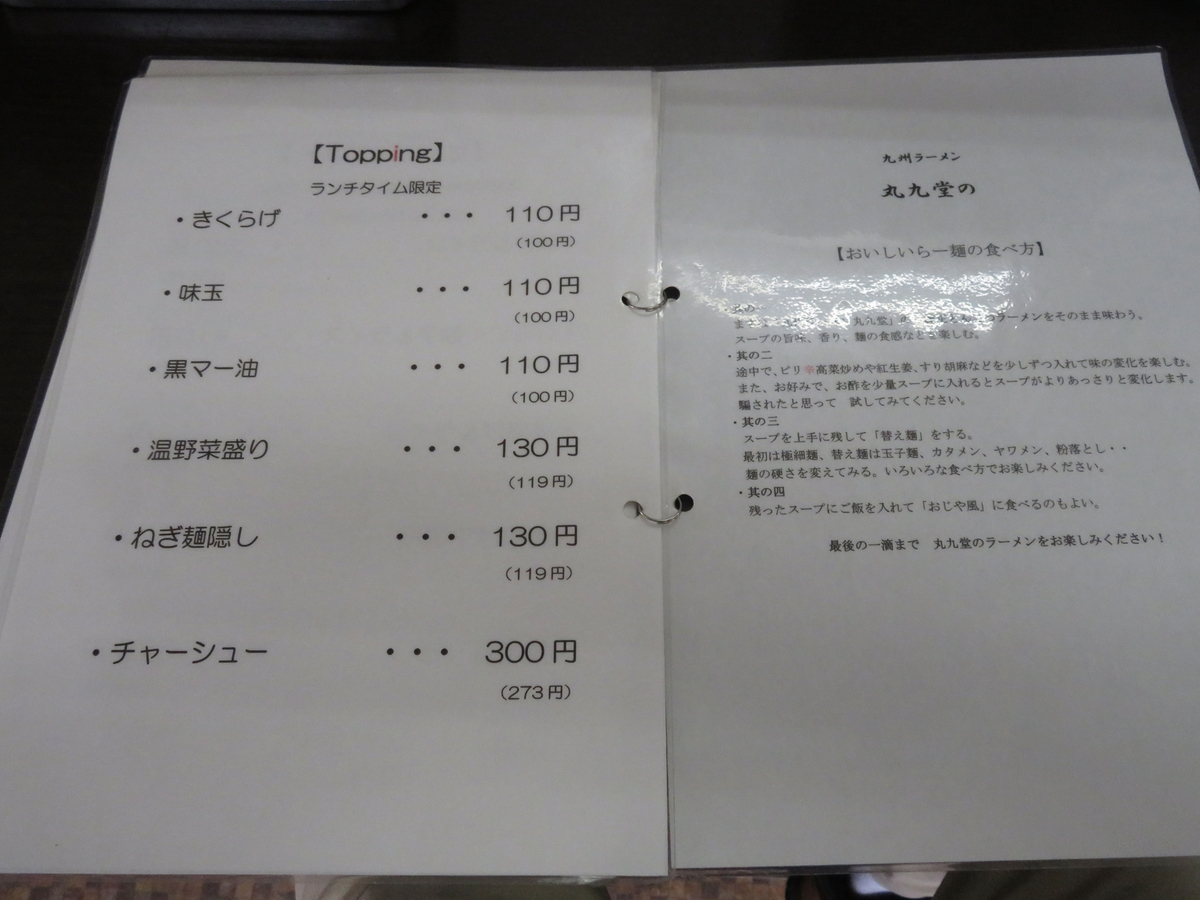 【Topping】
ランチタイム限定
・きくらげ ・・・ 110円
（100円）
・味玉 ・・・ 110円
（100円）
・黒マー油 ・・・ 110円
（100円）
・温野菜盛り ・・・ 130円
（119円）
・ねぎ麺隠し ・・・ 130円
（119円）
・チャーシュー ・・・ 300円
（273円）
九州ラーメン
丸九堂の
【おいしいらー麺の食べ方】
丸九堂」 ラーメンをそのまま味わう。
スープの旨味、香り、麺の食感などを楽しむ。
・其の二
途中で、ピリ辛高菜炒めや紅生姜、すり胡麻などを少しずつ入れて味の変化を楽しむ。
また、お好みで、お酢を少量スープに入れるとスープがよりあっさりと変化します。
騙されたと思って 試してみてください。
・其の三
スープを上手に残して「替え麺」をする。
最初は極細麺、替え麺は玉子麺、カタメン、ヤワメン、粉落とし・・
麺の硬さを変えてみる。いろいろな食べ方でお楽しみください。
・其の四
残ったスープにご飯を入れて「おじや風」に食べるのもよい。
最後の一滴まで 丸九堂のラーメンをお楽しみください！